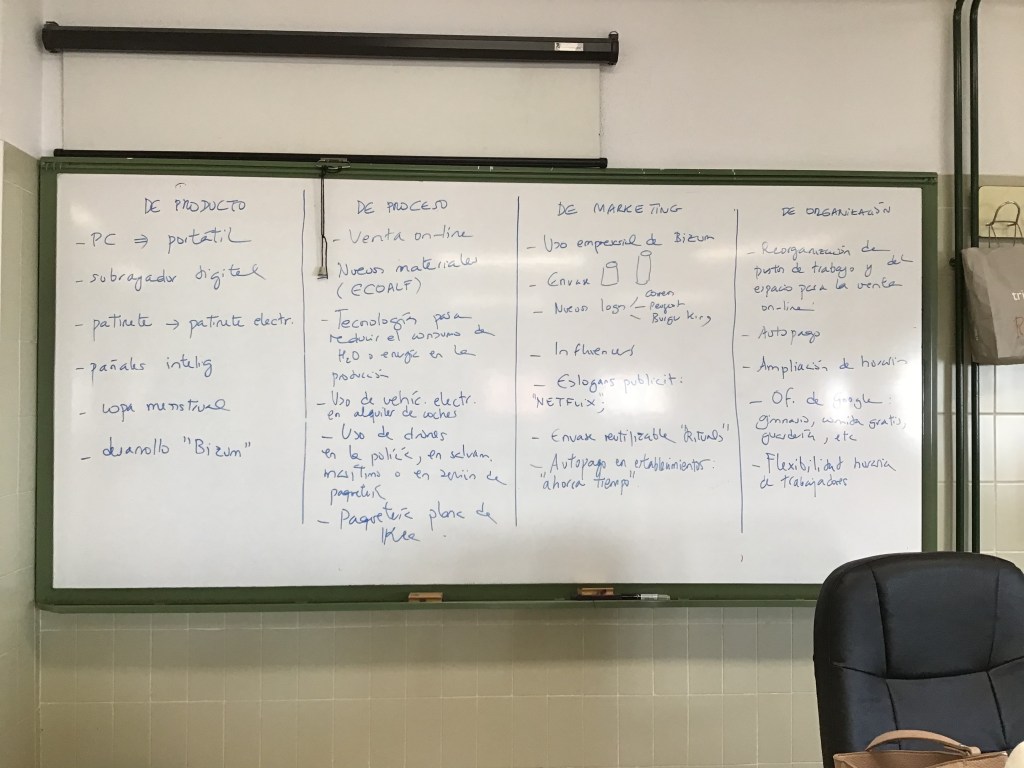 DE PRODUCTO
- PC ⇒ portátil
- subrayador digital
- patinete → patinete electr.
- pañales intelig
- copa menstrual
- desarrollo "Bizum"
DE PROCESO
- Venta on-line
- Nuevos materiales
(ECOALF)
- Tecnología para
reducir el consumo de
H2O o energía en la
producción
- Uso de vehíc. electr.
en alquiler de coches
- Uso de drones
en la policía, en salvam.
marítimo o en servicio de
paquetería
- Paquetería plana de
IKea
DE MARKETING
- Uso empresarial de Bizum
- Envase
- Nuevos logos
Peugeot
Burger King
- Influencers
- Eslogans publicit:
"NETFLIX"
- Envase reutilizable "Rituals"
- Autopago en establecimientos:
"ahorra tiempo"
DE ORGANIZACIÓN
- Reorganización de
puestos de trabajo y del
espacio para la venta
on-line
- Autopago
- Ampliación de horario
- Of. de Google:
gimnasio, comida gratis,
guardería, etc
- Flexibilidad horaria
de trabajadores
tri
R